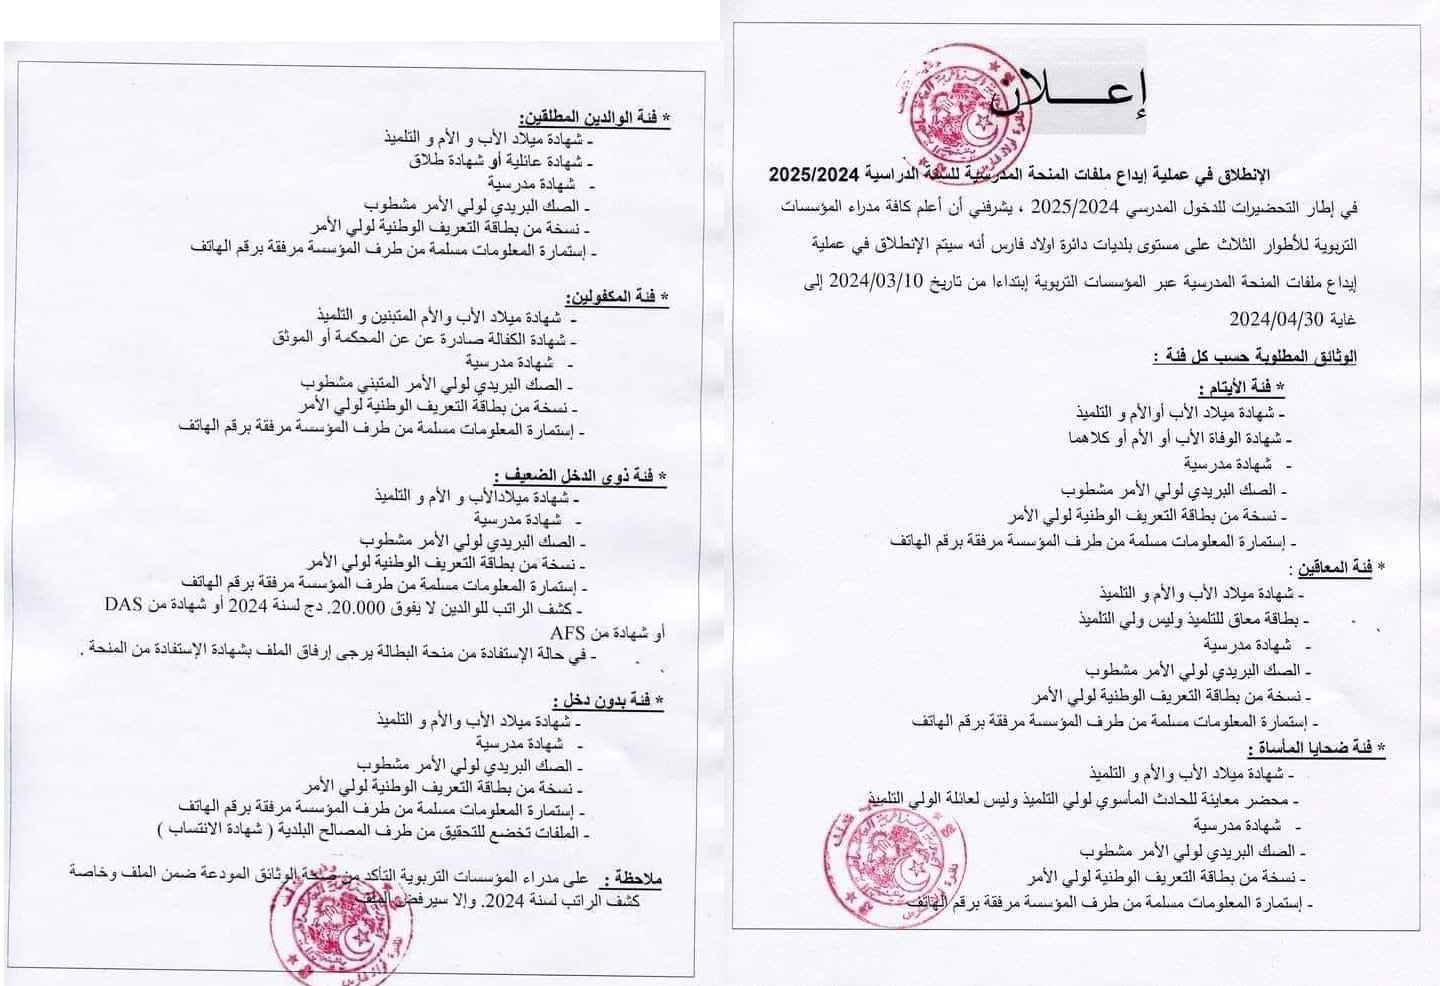 إعـــــلان
الإنطلاق في عملية إيداع ملفات المنحة المدرسية للسنة الدراسية 2025/2024
في إطار التحضيرات للدخول المدرسي 2025/2024 ، يشرفني أن أعلم كافة مدراء المؤسسات
التربوية للأطوار الثلاث على مستوى بلديات دائرة اولاد فارس أنه سيتم الإنطلاق في عملية
إيداع ملفات المنحة المدرسية عبر المؤسسات التربوية إبتداءا من تاريخ 2024/03/10 إلى
غاية 2024/04/30
الوثائق المطلوبة حسب كل فئة :
* فئة الأيتام :
- شهادة ميلاد الأب أوالأم و التلميذ
- شهادة الوفاة الأب أو الأم أو كلاهما
- شهادة مدرسية
- الصك البريدي لولي الأمر مشطوب
- نسخة من بطاقة التعريف الوطنية لولي الأمر
- إستمارة المعلومات مسلمة من طرف المؤسسة مرفقة برقم الهاتف
* فئة المعاقين :
- شهادة ميلاد الأب والأم و التلميذ
- بطاقة معاق للتلميذ وليس ولي التلميذ
- شهادة مدرسية
- الصك البريدي لولي الأمر مشطوب
- نسخة من بطاقة التعريف الوطنية لولي الأمر
- إستمارة المعلومات مسلمة من طرف المؤسسة مرفقة برقم الهاتف
* فئة ضحايا المأساة :
- شهادة ميلاد الأب والأم و التلميذ
- محضر معاينة للحادث المأسوي لولي التلميذ وليس لعائلة الولي التلميذ
- شهادة مدرسية
- الصك البريدي لولي الأمر مشطوب
- نسخة من بطاقة التعريف الوطنية لولي الأمر
- إستمارة المعلومات مسلمة من طرف المؤسسة مرفقة برقم الهاتف
* فئة الوالدين المطلقين:
- شهادة ميلاد الأب و الأم و التلميذ
- شهادة عائلية أو شهادة طلاق
- شهادة مدرسية
- الصك البريدي لولي الأمر مشطوب
- نسخة من بطاقة التعريف الوطنية لولي الأمر
- إستمارة المعلومات مسلمة من طرف المؤسسة مرفقة برقم الهاتف
* فئة المكفولين:
- شهادة ميلاد الأب والأم المتبنين و التلميذ
- شهادة الكفالة صادرة عن عن المحكمة أو الموثق
- شهادة مدرسية
- الصك البريدي لولي الأمر المتبني مشطوب
- نسخة من بطاقة التعريف الوطنية لولي الأمر
- إستمارة المعلومات مسلمة من طرف المؤسسة مرفقة برقم الهاتف
* فئة ذوي الدخل الضعيف :
- شهادة ميلادالأب و الأم و التلميذ
- شهادة مدرسية
- الصك البريدي لولي الأمر مشطوب
- نسخة من بطاقة التعريف الوطنية لولي الأمر
- إستمارة المعلومات مسلمة من طرف المؤسسة مرفقة برقم الهاتف
- كشف الراتب للوالدين لا يفوق 20.000. دج لسنة 2024 أو شهادة من DAS
أو شهادة من AFS
- في حالة الإستفادة من منحة البطالة يرجى إرفاق الملف بشهادة الإستفادة من المنحة .
* فئة بدون دخل :
- شهادة ميلاد الأب والأم و التلميذ
- شهادة مدرسية
- الصك البريدي لولي الأمر مشطوب
- نسخة من بطاقة التعريف الوطنية لولي الأمر
- إستمارة المعلومات مسلمة من طرف المؤسسة مرفقة برقم الهاتف
- الملفات تخضع للتحقيق من طرف المصالح البلدية ( شهادة الانتساب )
ملاحظة : على مدراء المؤسسات التربوية التأكد من صحة الوثائق المودعة ضمن الملف وخاصة
كشف الراتب لسنة 2024. وإلا سيرفض الملف